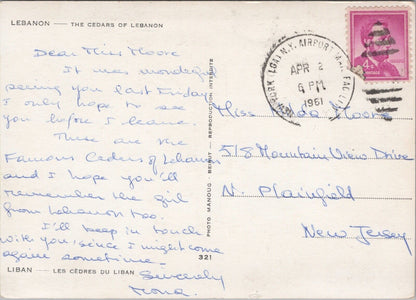 LEBANON — THE CEDARS OF LEBANON
Dear Miss Moore
It was wonderful
seeing you last Friday
I only hope to see
you before I leave.
These are the
Famous Cedars of Lebanon
and I hope you'll
remember the girl
from Lebanon too.
I'll keep in touch
with you, since I might come
again sometime.
Sincerely
Mona.
LIBAN — LES CÈDRES DU LIBAN
PHOTO MANOUG BEIRUT — REPRODUCTION INTERDITE
321
NEW YORK (LGA) N.Y. AIRPORT MAIL FAC.
APR 2
6 PM
1961
4¢
Miss Moore
518 Mountain View Drive
N. Plainfield
New Jersey